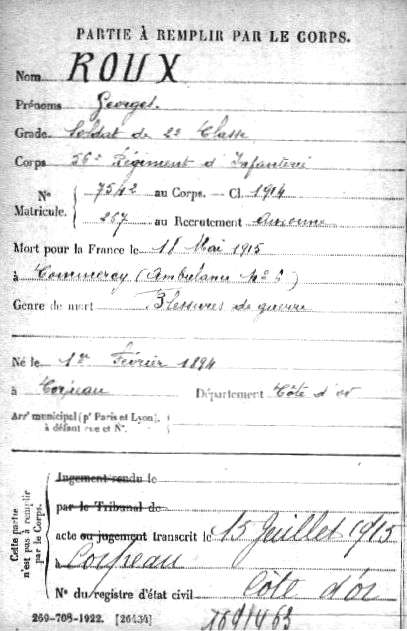 PARTIE À REMPLIR PAR LE CORPS.
Nom ROUX
Prénoms Georges
Grade Soldat de 2e Classe
Corps 56e Régiment d'Infanterie
No 7542 au Corps. — Cl. 1914
Matricule. 267 au Recrutement Auxonne
Mort pour la France le 18 Mai 1915
à Commercy (Ambulance No 6)
Genre de mort Blessures de guerre
Né le 1er Février 1894
à Corpeau Département Côte d'or
Arrt municipal (pr Paris et Lyon),
à défaut rue et No.
Cette partie
n'est pas à remplir
par le Corps.
Jugement rendu le
par le Tribunal de
acte ou jugement transcrit le 15 Juillet 1915
Corpeau
No du registre d'état civil Côte d'Or
269-708-1922. [26434]